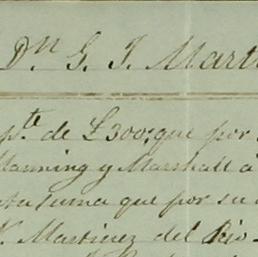 Dn. G. I. Mart
pte. de £300, que por
Manning y Marshall á
esta suma que por su
Martinez del Rio